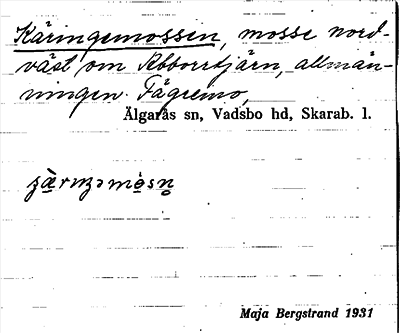 Käringemossen, mosse nord-
väst om Abborrtjärn, allmän-
ningen. Fägremo,
Älgarås sn, Vadsbo hd, Skarab. l.
Maja Bergstrand 1931